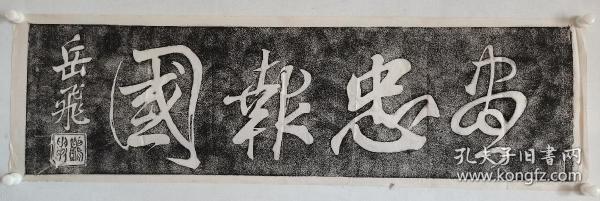 尽忠報國
岳飛
孔夫子旧书网
www.kongfz.com